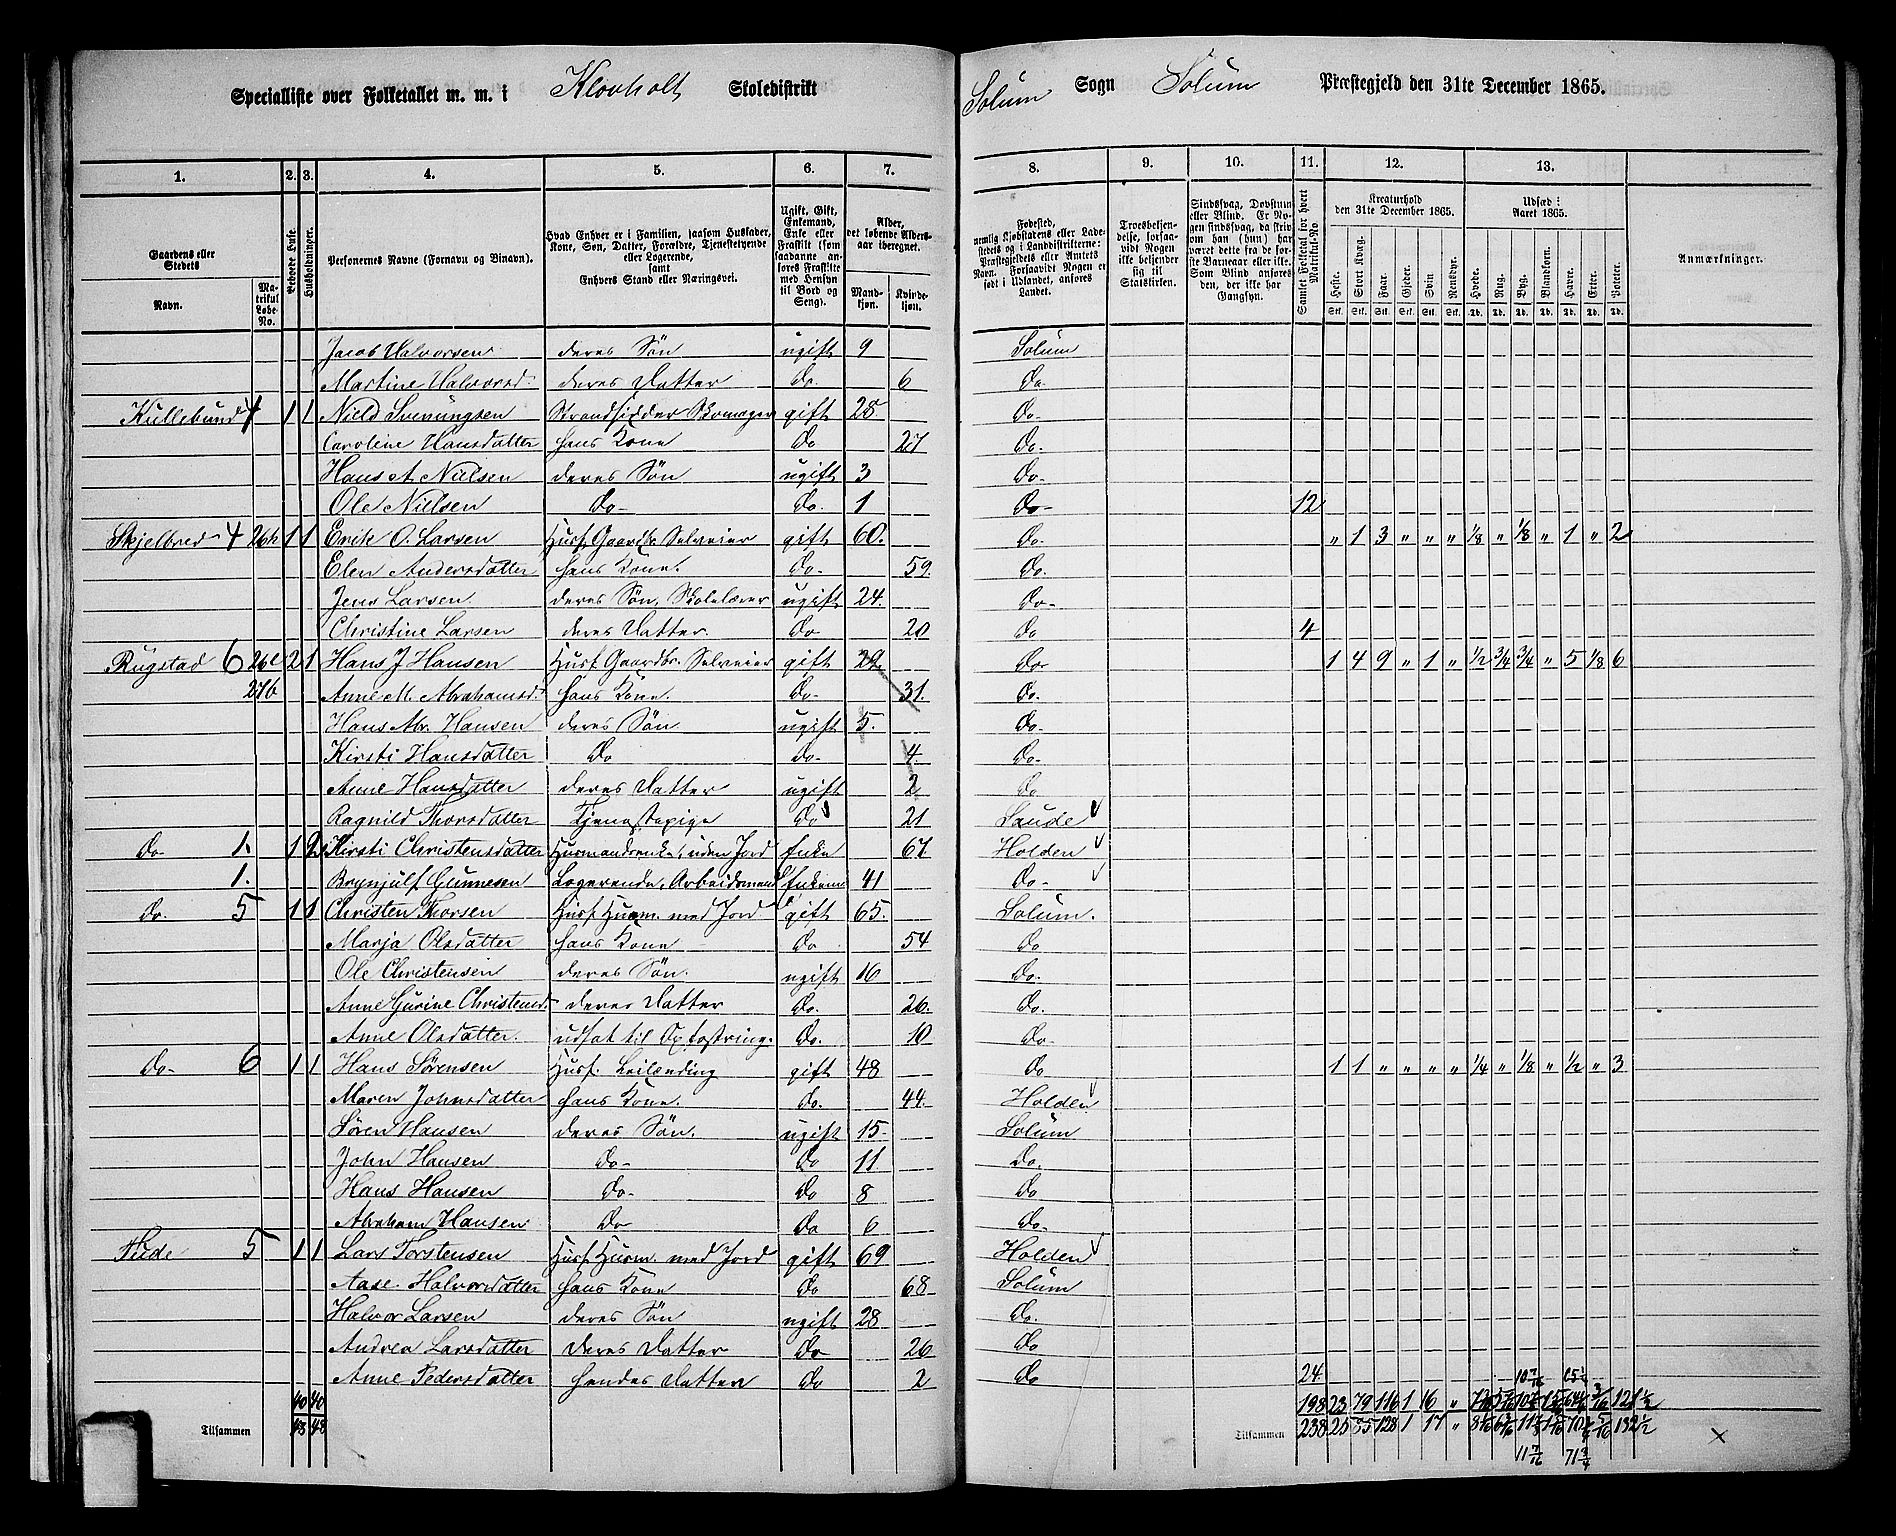 Specialliste over Folketallet m. m. i Klovholt Skoledistrikt Solum Sogn Solum Præstegjeld den 31te December 1865.
1. 2. 3. 4. 5. 6. 7. 8. 9. 10. 11. 12. 13.
Gaardens eller Stedets Navn. Matrikul Løbe-No. Beboede Huse. Husholdninger. Personernes Navne (Fornavn og Binavn).
Hvad Enhver er i Familien, saasom Husfader, Kone, Søn, Datter, Forældre, Tjenestetyende eller Logerende, samt Enhvers Stand eller Næringsvei.
Ugift, Gift, Enkemand, Enke eller Fraskilt (som saadanne anføres Fraskilte med Hensyn til Bord og Seng).
Alder, det løbende Aldersaar iberegnet. Mandkjøn. Kvindekjøn.
Fødested, nemlig Kjøbstadens eller Ladestedets og i Landdistrikterne: Præstegjeldets eller Amtets Navn. Forsaavidt Nogen er født i Udlandet, anføres Landet.
Troesbekjendelse, forsaavidt Nogen ikke bekjender sig til Statskirken.
Sindssvag, Døvstum eller Blind. Er Nogen sindssvag, da skriv om han (hun) har været dette fra de første Barneaar eller ikke. Som Blind anføres den, der ikke har Gangsyn.
Samlet Folketal for hvert Matrikul-No
Kreaturhold den 31te December 1865. Heste. Stort Kvæg. Faar. Gjeder. Svin. Rensdyr.
Udsæd i Aaret 1865. Hvede. Rug. Byg. Blandkorn. Havre. Erter. Poteter.
Anmærkninger.
Jacob Halvorsen deres Søn ugift 9 Solum
Martine Halvorsd. deres Datter do. 6 do.
Kullebund 4 1 1 Niels Svenungsen Strandsidder Skomager gift 28 do-
Caroline Hansdatter hans Kone do 27 do-
Hans A. Nielsen deres Søn ugift 3 do-
Ole Nielsen do- do. 1 do- 12
Skjelbred 4 26h 1 1 Erik O. Larsen Husf. Gaardb. Selveier gift 60. do. " 1 3 " " " 1/8 " 1/8 " 1 " 2
Elen Andersdatter hans Kone. do- 59. do.
Jens Larsen deres Søn, Skolelærer ugift 24. do-
Christine Larsen deres Datter. do 20 do 4
Rugstad 6 26c 2 1 Hans J Hansen Husf Gaardbr. Selveier gift 29. do- 1 4 9 " 1 " 1/2 3/4 3/4 " 5 1/8 6
27b Anne M. Abrahamsd. hans Kone. do- 31. do.
Hans Abr. Hansen deres Søn ugift 5. do-
Kirsti Hansdatter do do- 4. do-
Anne Hansdatter deres Datter ugift 2 do
Ragnild Thorsdatter Tjenestepige do 21 Saude
do 1. 1 2 Kirsti Christensdatter Husmandsenke, uden Jord Enke 67. Holden
1. Brynjulf Gunnesen Logerende, Arbeidsmand Enkem 41 do-
do. 5 1 1 Christen Thorsen Husf. Husm. med Jord gift 65. Solum.
Marja Olsdatter hans Kone do 54 do
Ole Christensen deres Søn. ugift 16 do.
Anne Gurine Christensd. deres Datter do. 26. do.
Anne Olsdatter. udsat til Opfostring. do. 10 do-
do- 6 1 1 Hans Sørensen Husf. Leilænding gift 48 do 1 1 " " " " 1/4 " 1/8 " 1/2 " 3
Maren Johnsdatter hans Kone. do. 44. Holden
Søren Hansen deres Søn. ugift 15. Solum
John Hansen do- do 11 do.
Hans Hansen do- do 8 do
Abraham Hansen do do 6 do-
5 1 1 Lars Torstensen Husf Husm. med Jord gift 69 Holden
Aase. Halvorsdatter hans Kone do 68 Solum
Halvor Larsen deres Søn ugift 28 do.
Andrea Larsdatter deres Datter do 26 do
Anne Pedersdatter hendes Datter do 2 do 24
40 40 198 23 79 116 1 16 "
Tilsammen 48 48 Tilsammen 238 25 85 128 1 17 " 132 1/2
11 7/16 71 3/4